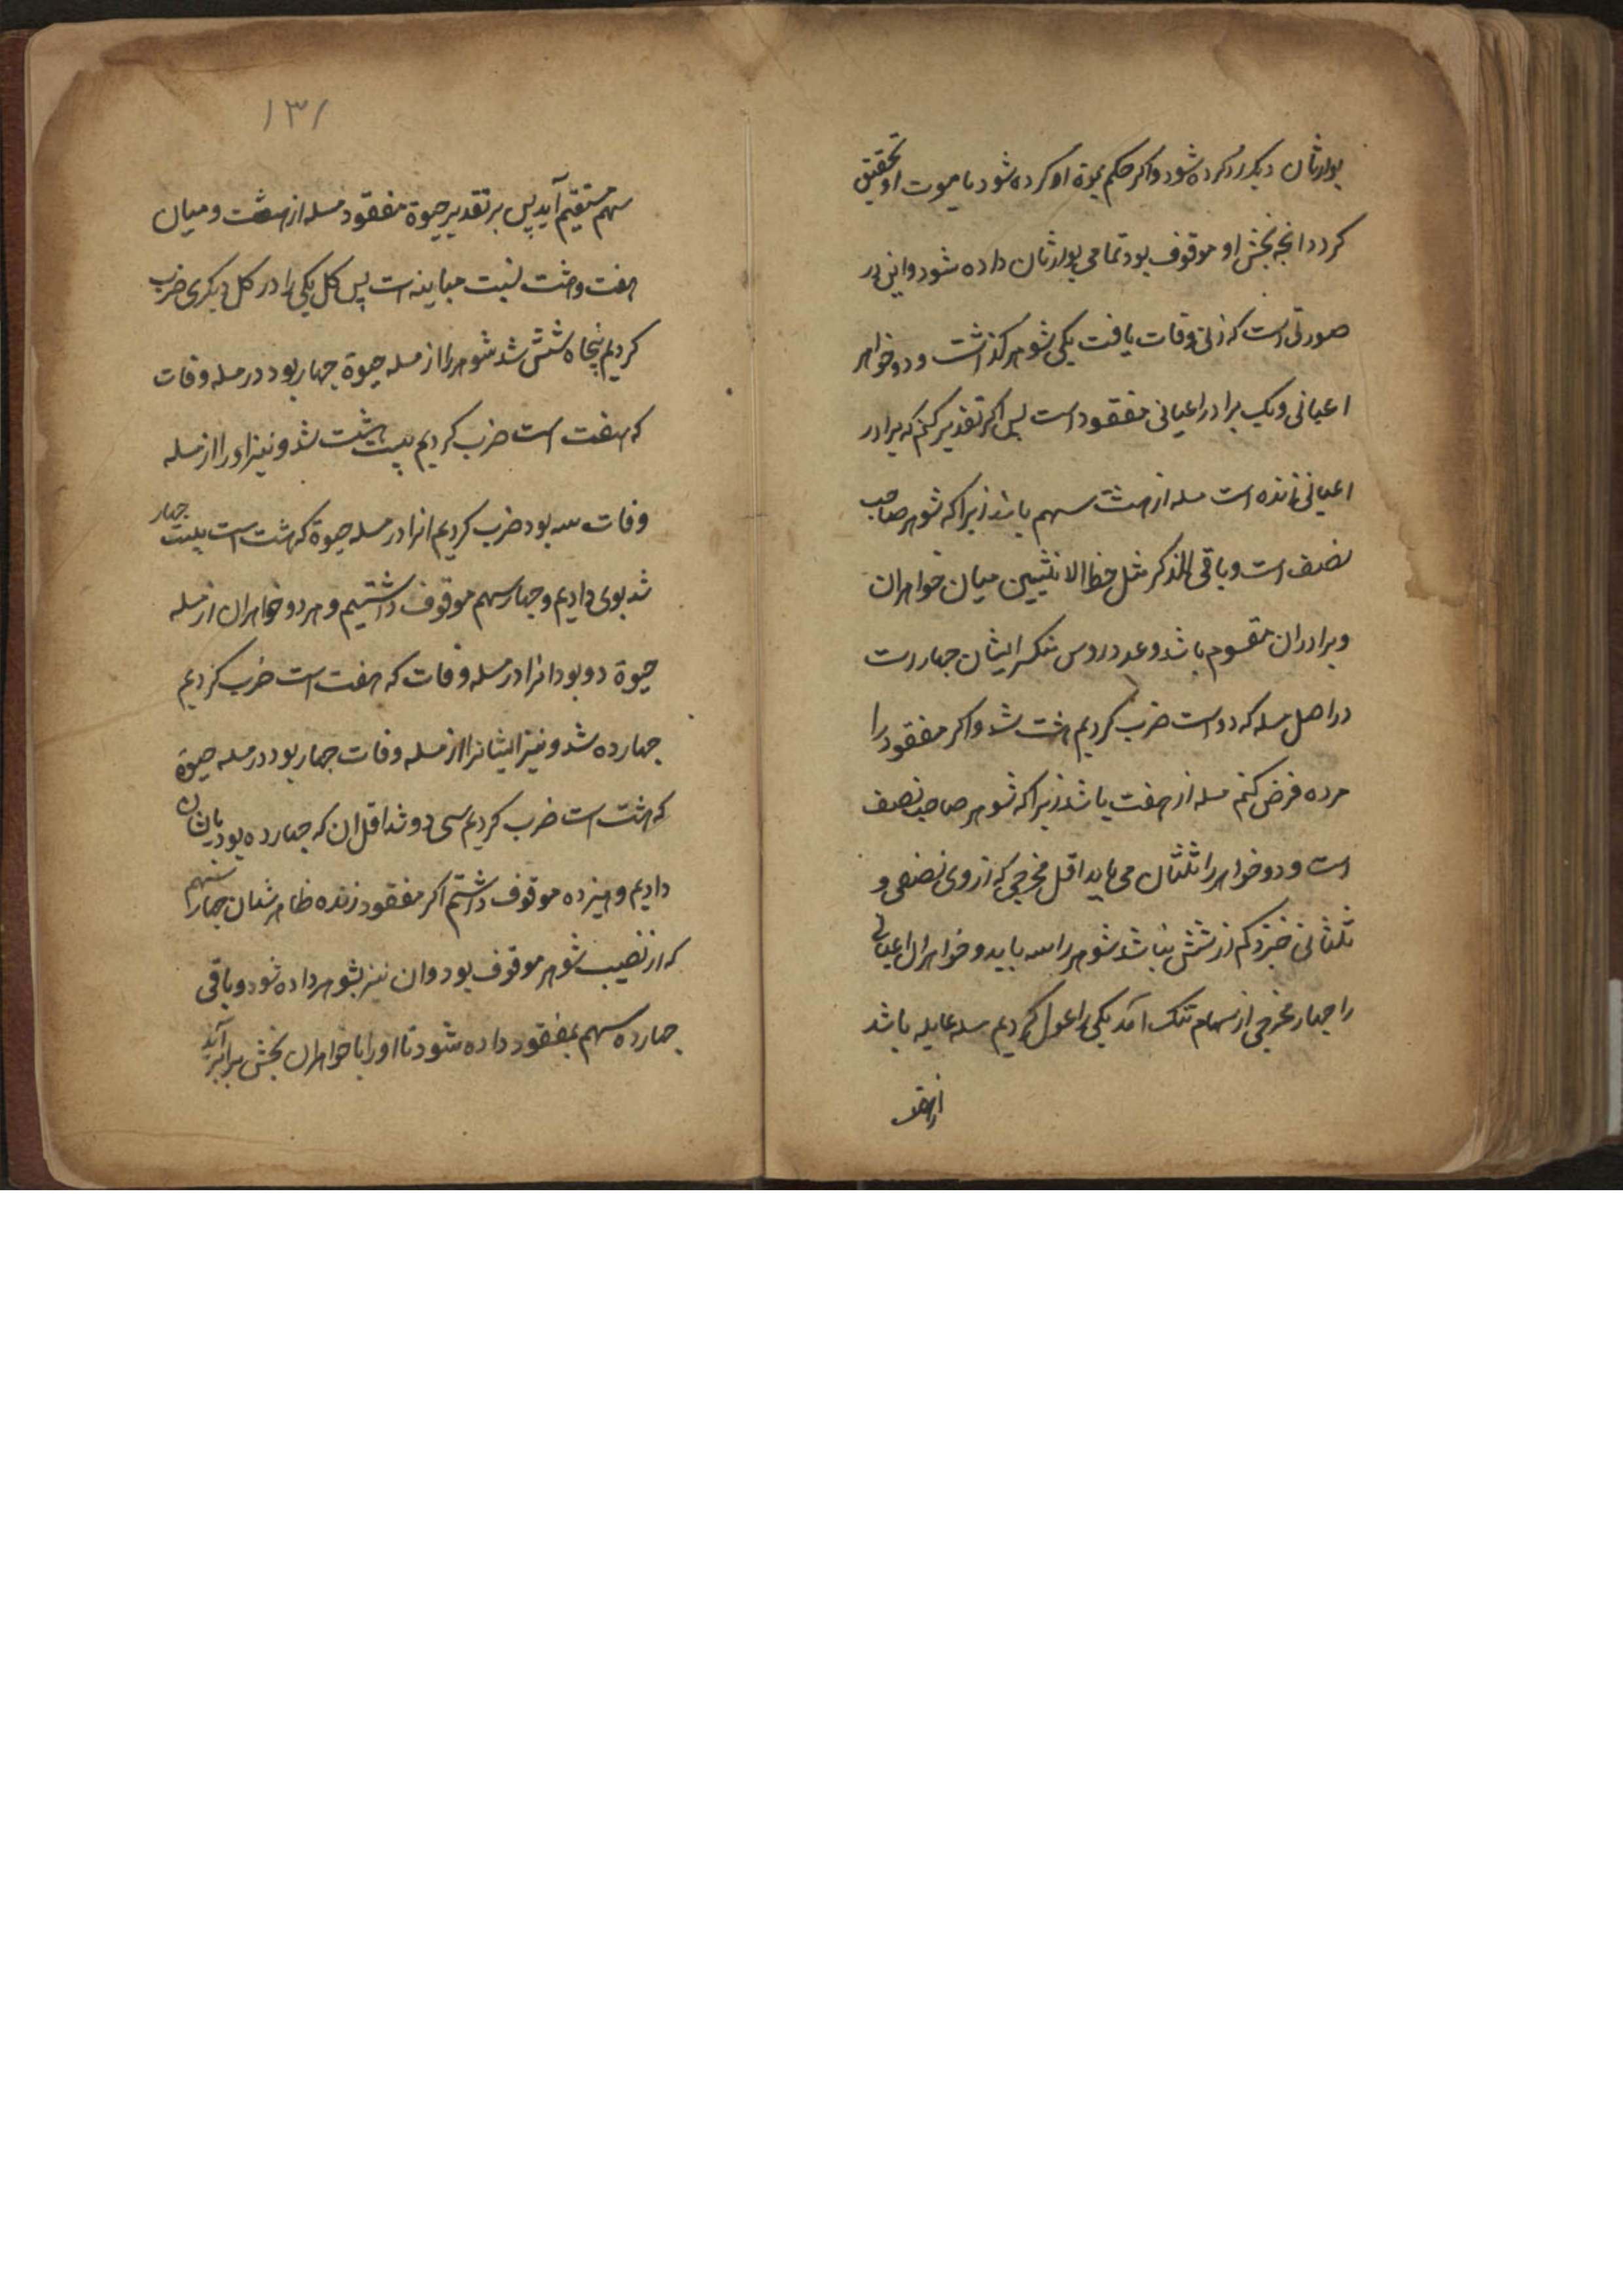 بوارثان دیکر رد کرده شود واکر حکم بموة او کرده شود یا موت او تحقیق
کردد انجه بخش او موقوف بود تمامی بوارثان داده شود واین در
صورتی است که زنی وفات یافت یکی شوهر کذاشت و دو خواهر
اعیانی ویک برادر اعیانی مفقود است پس اکر تقدیر کنم که برادر
اعیانی زنده است مسله از هشت سهم باشد زیرا که شوهر صاحب
نصف است وباقی للذکر مثل حظ الانثیین میان خواهران
وبرادران مقسوم باشد وعدد روس منکسر ایشان جهارست
در اصل مسله که دو است ضرب کردیم هشت شد واکر مفقود را
مرده فرض کنم مسله از هفت باشد زیرا که شوهر صاحب نصف
است ودو خواهر را ثلثان می باید اقل مخرجی که از وی نصفی و
ثلثانی خیزد کم از شش نباشد شوهر را سه باید وخواهران اعیانی
را جهار مخرجی از سهام تنک آمد یکی را عول کردیم مسله عایله باشد
از هفت
۱۳۱
سهم مستقیم آید پس بر تقدیر حیوة مفقود مسله از هشت ومیان
هفت وهشت نسبت مباینه است پس کل یکی را در کل دیکری ضرب
کردیم پنجاه شش شد شوهر را از مسله حیوة جهار بود در مسله وفات
که هفت است ضرب کردیم بیست هشت شد ونیز او را از مسله
وفات سه بود ضرب کردیم انرا در مسله حیوة که هشت است بیست جهار
شد بوی دادیم وجهار سهم موقوف داشتیم وهر دو خواهران از مسله
حیوة دو بود انرا در مسله وفات که هفت است ضرب کردیم
جهارده شد ونیز ایشانرا از مسله وفات جهار بود در مسله حیوة
که هشت است ضرب کردیم سی دو شد اقل ان که جهارده بود بایشان
دادیم وهیزده موقوف داشتم اکر مفقود زنده ظاهر شد ان جهار سهم را
که از نصیب شوهر موقوف بود وان نیز بشوهر داده شود وباقی
جهارده سهم بمفقود داده شود تا او را با خواهران بخش برابر آید